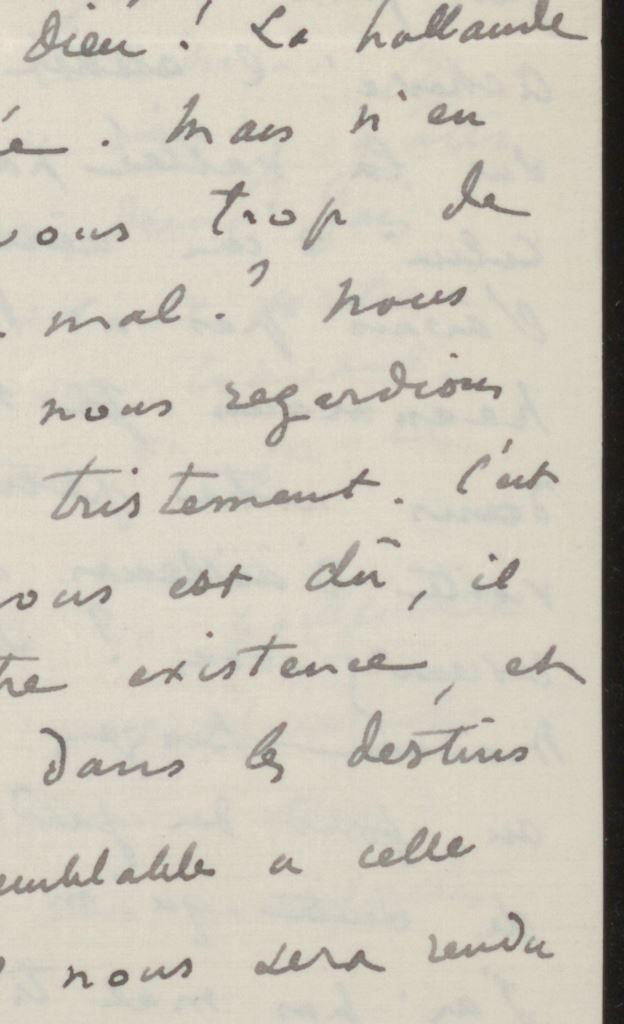 Dieu ! La hollande
ée. Mais n'en
vous trop de
mal ? Nous
nous regardions
tristement. C'est
vous est dû, il
tre existence, et
dans les destins
emblable a celle
nous sera rendu